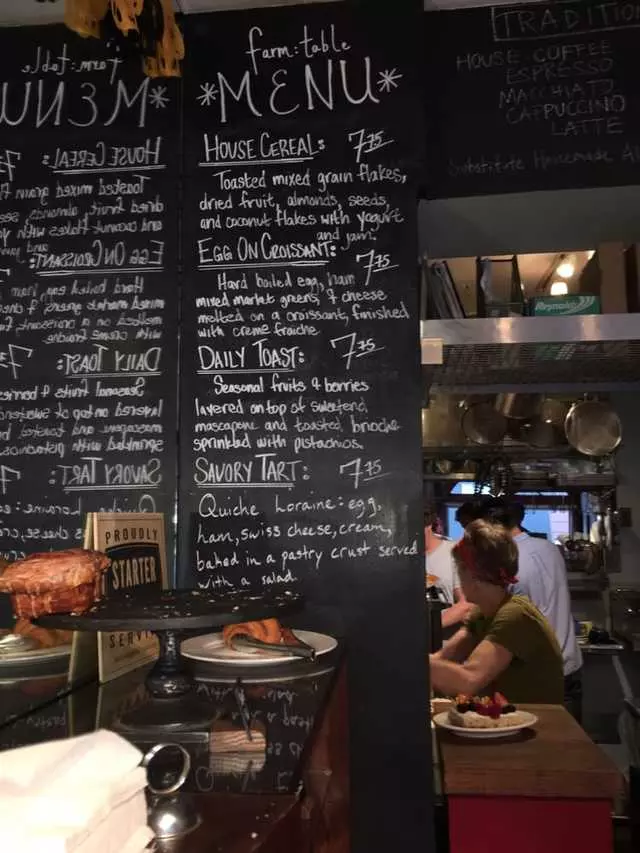 farm:table
*MENU*
HOUSE CEREAL: 7.75
Toasted mixed grain flakes,
dried fruit, almonds, seeds,
and coconut flakes with yogurt
and jam.
EGG ON CROISSANT: 7.75
Hard boiled egg, ham
mixed market greens, & cheese
melted on a croissant, finished
with creme fraiche
DAILY TOAST: 7.75
Seasonal fruits & berries
layered on top of sweetend
mascapone and toasted, brioche
sprinkled with pistachios.
SAVORY TART: 7.75
Quiche Loraine: egg,
ham, swiss cheese, cream,
baked in a pastry crust served
with a salad.
TRADITIO
HOUSE COFFEE
ESPRESSO
MACCHIATO
CAPPUCCINO
LATTE
Substitute Homemade
Reynolds
PROUDLY
STARTER
SERV